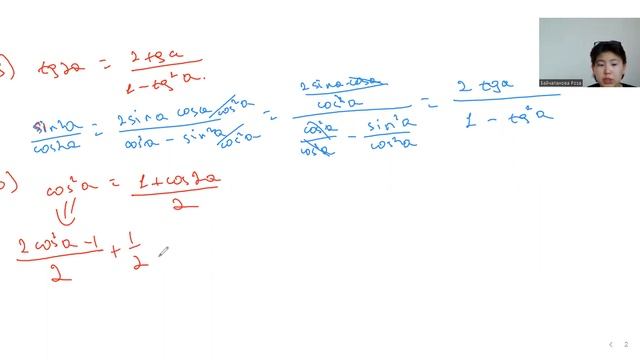 ) tg2a = 2tga / 1 - tg²a.
sin²a / cos2a = 2sina cosa/cos²a / cos²a - sin²a/cos²a = 2sina cosa / cos²a / cos²a / cos²a - sin²a / cos²a = 2 tga / 1 - tg²a
) cos²a = 1 + cos2a / 2
2cos²a - 1 / 2 + 1 / 2
2